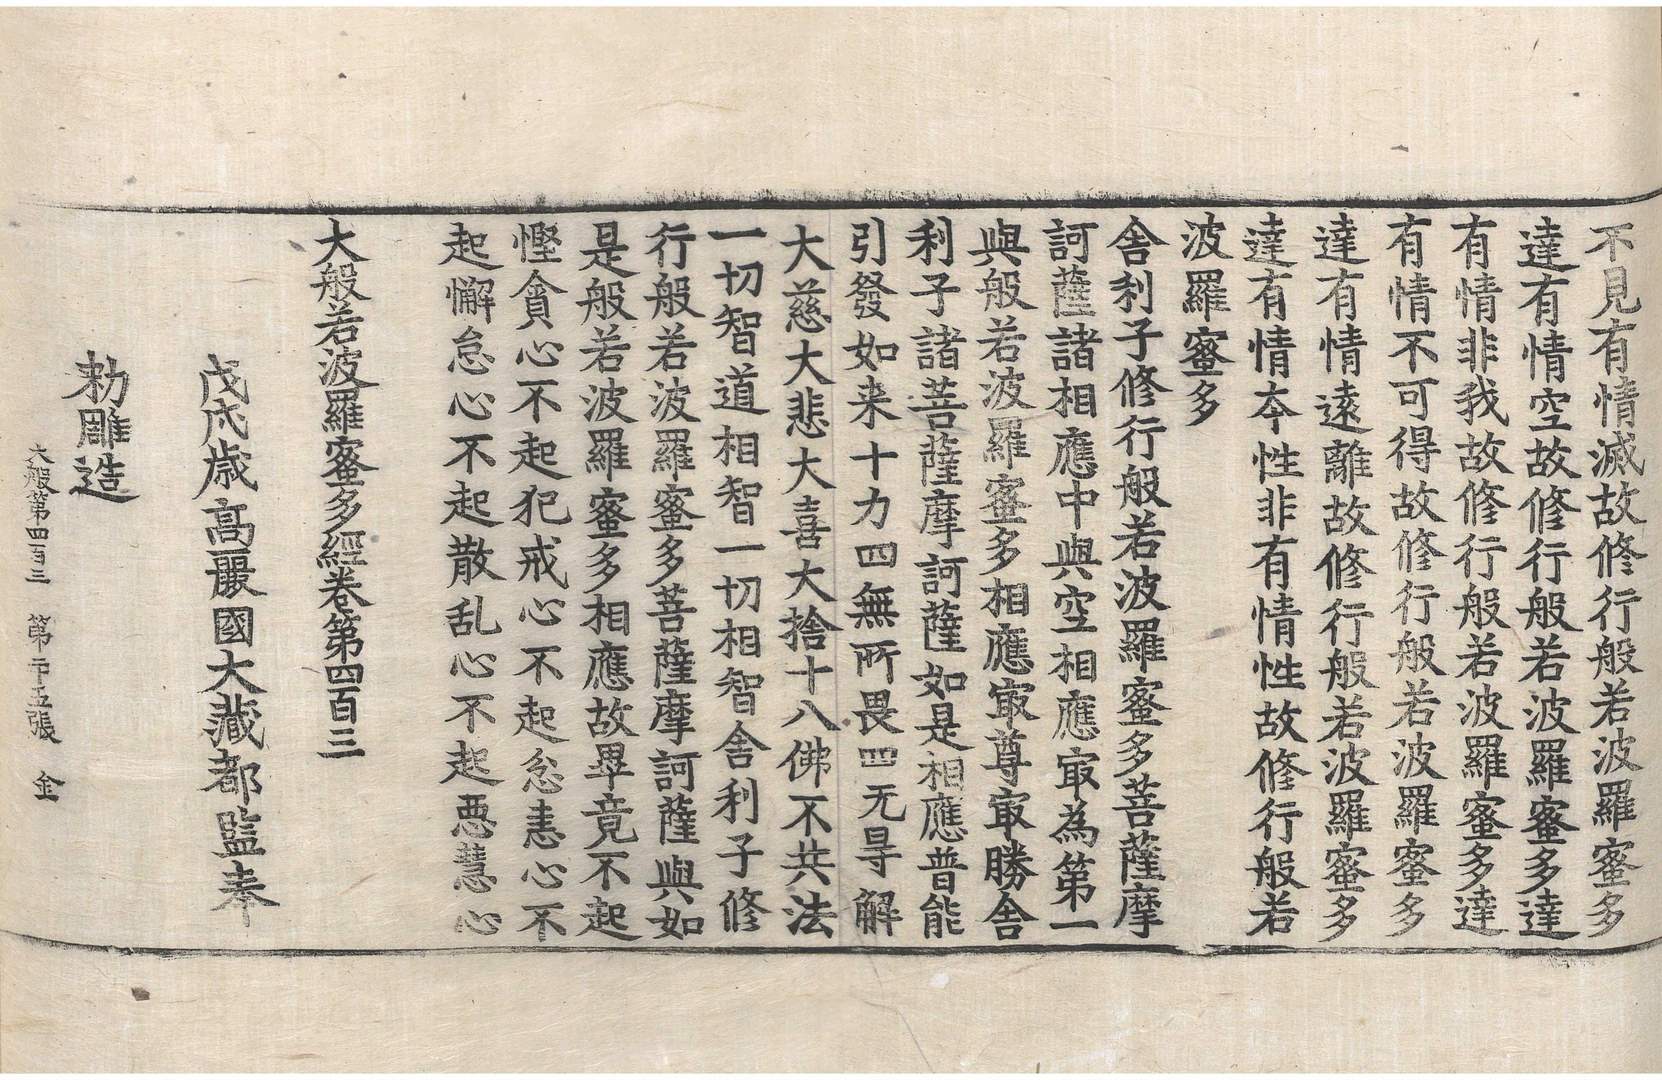 不見有情滅故修行般若波羅蜜多
達有情空故修行般若波羅蜜多達
有情非我故修行般若波羅蜜多達
有情不可得故修行般若波羅蜜多
達有情遠離故修行般若波羅蜜多
達有情夲性非有情性故修行般若
波羅蜜多
舍利子修行般若波羅蜜多菩薩摩
訶薩諸相應中與空相應㝡為第一
與般若波羅蜜多相應㝡尊㝡勝舍
利子諸菩薩摩訶薩如是相應普能
引發如来十力四無所畏四无㝵解
大慈大悲大喜大捨十八佛不共法
一切智道相智一切相智舍利子修
行般若波羅蜜多菩薩摩訶薩與如
是般若波羅蜜多相應故畢竟不起
慳貪心不起犯戒心不起忿恚心不
起懈怠心不起散乱心不起悪慧心
大般若波羅蜜多經卷第四百三
戊戌歳高麗國大藏都監奉
勑雕造
大般第四百三 第二十五張 金